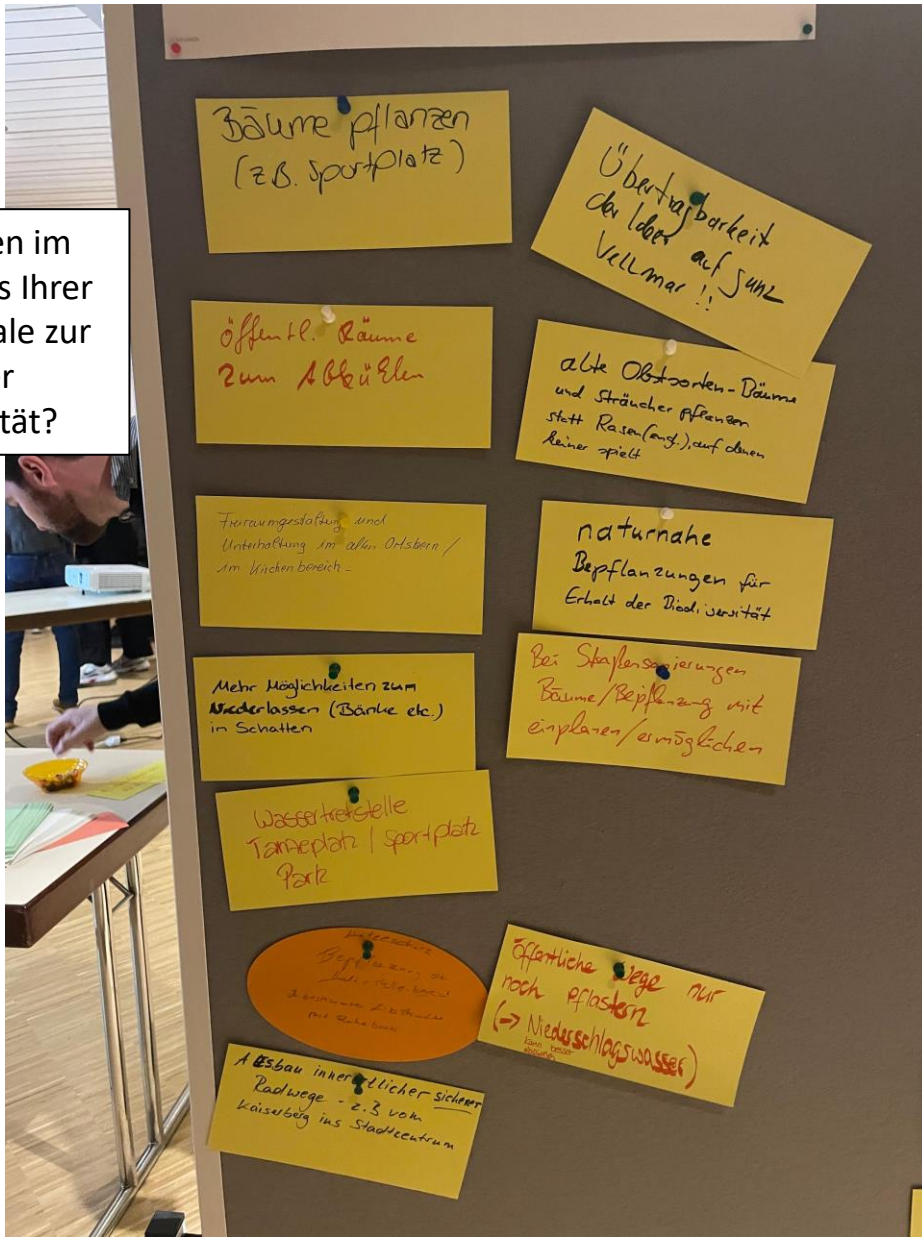 en im
s Ihrer
ale zur
er
tät?
Bäume pflanzen
(z.B. Sportplatz)
öffentl. Räume
zum Abkühlen
Freiraumgestaltung und
Unterhaltung im alten Ortskern /
im Kirchenbereich
Mehr Möglichkeiten zum
Niederlassen (Bänke etc.)
in Schatten
Wassertretstelle
/ Sportplatz
Park
Hitzeschutz
Bepflanzung
Ausbau innerörtlicher sicherer
Radwege - z.B vom
Kaiserberg ins Stadtzentrum
Übertragbarkeit
der Ideen auf ganz
Vellmar !!
alte Obstsorten-Bäume
und Sträucher pflanzen
statt Rasen (engl.), auf denen
keiner spielt
naturnahe
Bepflanzungen für
Erhalt der Biodiversität
Bei Straßensanierungen
Bäume/Bepflanzung mit
einplanen/ermöglichen
öffentliche Wege nur
noch pflastern
(→ Niederschlagswasser)
kann besser